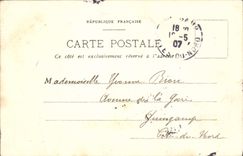 RÉPUBLIQUE FRANÇAISE
CARTE POSTALE
Ce côté est exclusivement réservé à l'adresse
18
5
07
Mademoiselle Yvonne
Avenue de la Gare
Guingamp
Côtes du Nord